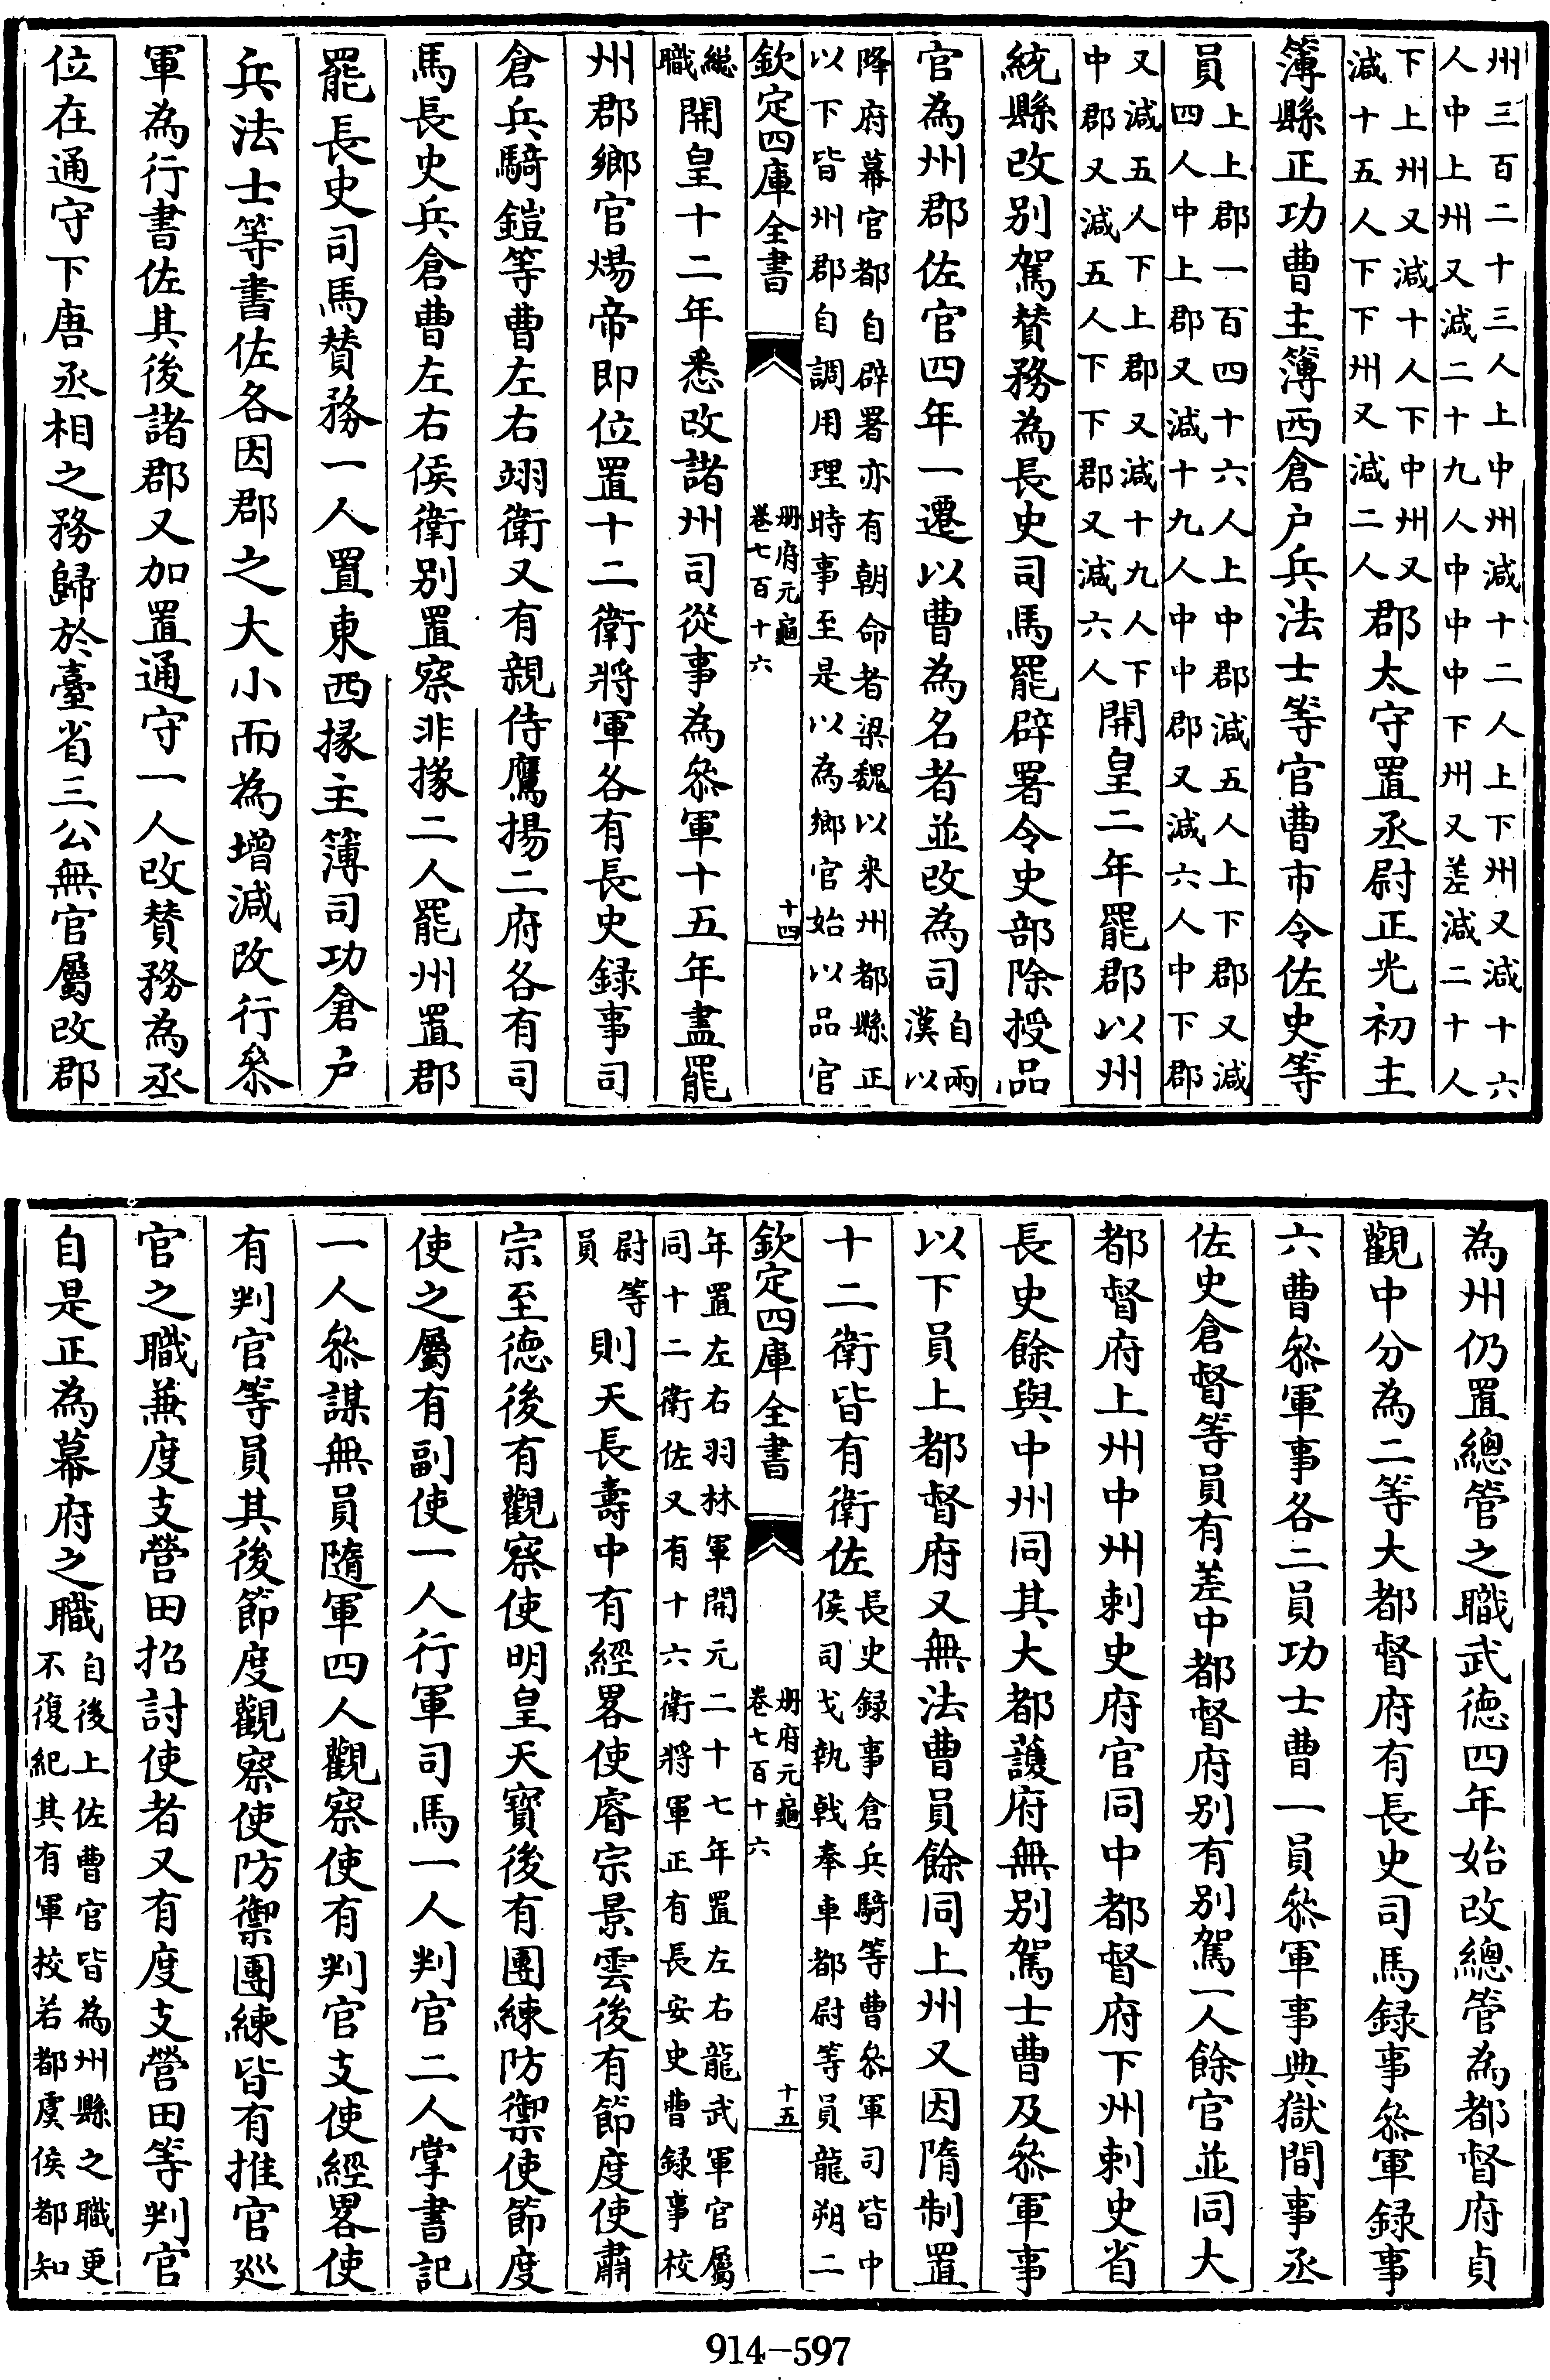 州三百二十三人上中州減十二人上下州又減十六
人中上州又減二十九人中中中下州又差減二十人
下上州又減十人下中州又
減十五人下下州又減二人
郡太守置丞尉正光初主
簿縣正功曹主簿西倉户兵法士等官曹市令佐史等
員
上上郡一百四十六人上中郡減五人上下郡又減
四人中上郡又減十九人中中郡又減六人中下郡
又減五人下上郡又減十九人下
中郡又減五人下下郡又減六人
開皇二年罷郡以州
統縣改别駕賛務為長史司馬罷辟署令史部除授品
官為州郡佐官四年一遷以曹為名者並改為司
自兩
漢以
降府幕官都自辟署亦有朝命者梁魏以来州都縣正
以下皆州郡自調用理時事至是以為鄉官始以品官
欽定四庫全書
册府元龜
卷七百十六
十四
總
職
開皇十二年悉改諸州司從事為叅軍十五年盡罷
州郡鄉官煬帝即位置十二衛將軍各有長史録事司
倉兵騎鎧等曹左右翊衛又有親侍鷹揚二府各有司
馬長史兵倉曹左右侯衛别置察非掾二人罷州置郡
罷長史司馬賛務一人置東西掾主簿司功倉户
兵法士等書佐各因郡之大小而為增減改行叅
軍為行書佐其後諸郡又加置通守一人改賛務為丞
位在通守下唐丞相之務歸於臺省三公無官屬改郡
為州仍置總管之職武徳四年始改總管為都督府貞
觀中分為二等大都督府有長史司馬録事叅軍録事
六曹叅軍事各二員功士曹一員叅軍事典獄間事丞
佐史倉督等員有差中都督府别有别駕一人餘官並同大
都督府上州中州刺史府官同中都督府下州刺史省
長史餘與中州同其大都護府無别駕士曹及叅軍事
以下員上都督府又無法曹員餘同上州又因隋制置
十二衛皆有衛佐
長史録事倉兵騎等曹叅軍司皆中
侯司戈執戟奉車都尉等員龍朔二
欽定四庫全書
册府元龜
卷七百十六
十五
年置左右羽林軍開元二十七年置左右龍武軍官屬
同十二衛佐又有十六衛將軍正有長安史曹録事校
尉等
員
則天長壽中有經畧使睿宗景雲後有節度使肅
宗至徳後有觀察使明皇天寳後有團練防禦使節度
使之屬有副使一人行軍司馬一人判官二人掌書記
一人叅謀無員隨軍四人觀察使有判官支使經畧使
有判官等員其後節度觀察使防禦團練皆有推官廵
官之職兼度支營田招討使者又有度支營田等判官
自是正為幕府之職
自後上佐曹官皆為州縣之職更
不復紀其有軍校若都虞侯都知
914-597